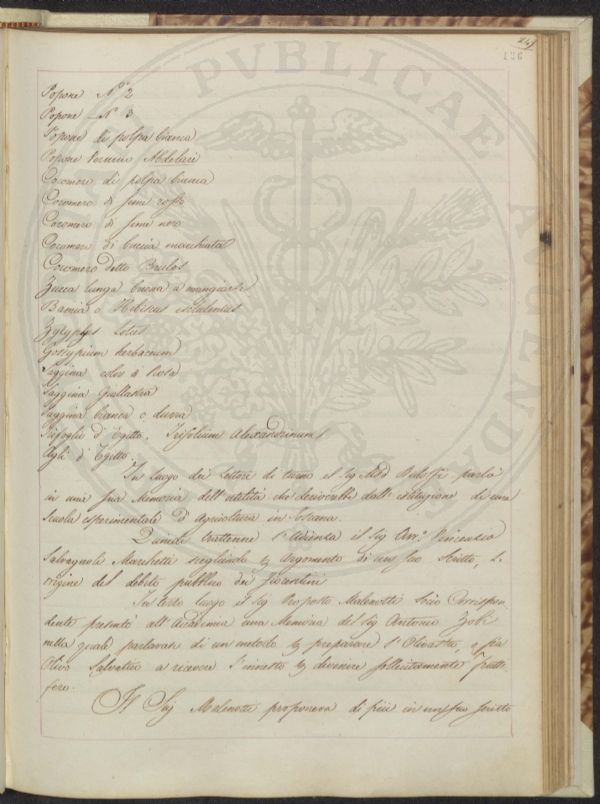 241
186
Popone N.º 2
Popone N. 3
Popone di polpa bianca
Popone Abdelari
Cocomero di polpa bianca
Cocomero di semi rossi
Cocomero di semi nero
Cocomero di buccia macchiata
Cocomero detto Brulos
Zucca lunga buona a mangiarsi
Bamia o Hibiscus esculentus
Zyzyphus Lotus
Gossypium herbaceum
Saggina color di Rosa
Saggina Giallastra
Saggina bianca o durra
Trifoglio d'Egitto, Trifolium Alexandrinum
Agli d'Egitto.
In luogo dei Lettori di turno il Sig. Ridolfi parlò
in una sua Memoria dell'utilità che deriverebbe dall'istituzione di una
Scuola esperimentale d'Agricoltura in Toscana.
Quindi trattenne l'Adunza il Sig. Avv.º Vincenzio
Salvagnoli Marchetti scegliendo Argomento di un suo Scritto, l'
origine del debito pubblico dei fiorentini
In terzo luogo il Sig. Proposto Malenotti Socio Corrispon
dente presentò all'Accademia una Memoria del Sig. Antonio Zobi
nella quale parlavasi di un metodo preparare l'Olivastro, o sia
Olivo Salvatico a ricevere l'innesto divenire sollecitamente frutti-
fero.
Il Sig. Malenotti proponeva di più in un suo scritto
PVBLICAE